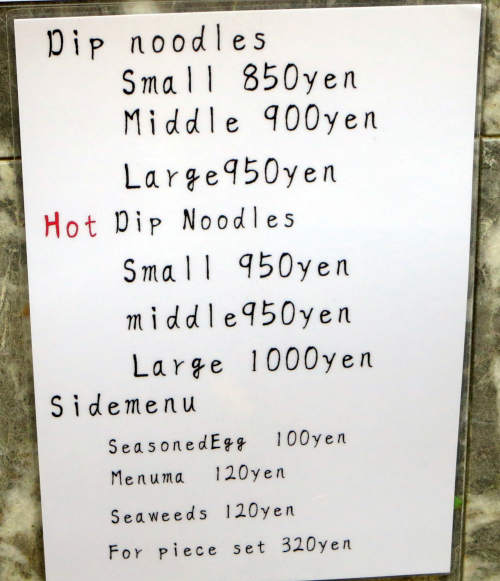 Dip noodles
Small 850yen
Middle 900yen
Large950yen
Hot Dip Noodles
Small 950yen
middle950yen
Large 1000yen
Sidemenu
SeasonedEgg 100yen
Menuma 120yen
Seaweeds 120yen
For piece set 320yen